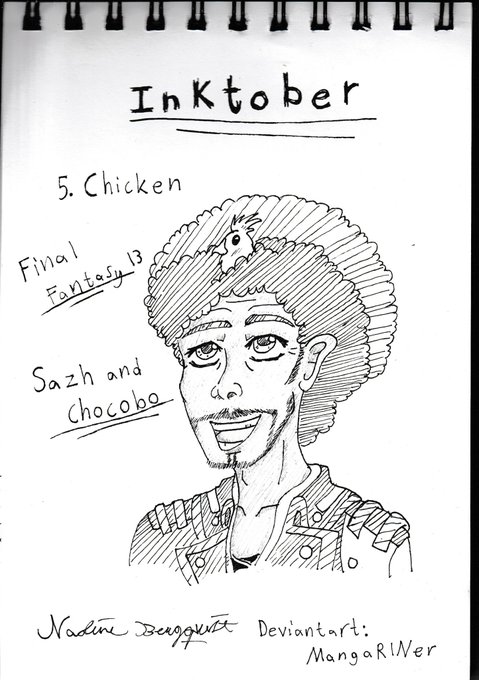 Inktober
5. Chicken
Final
Fantasy 13
Sazh and
Chocobo
Nadine Deviantart:
MangaRINer